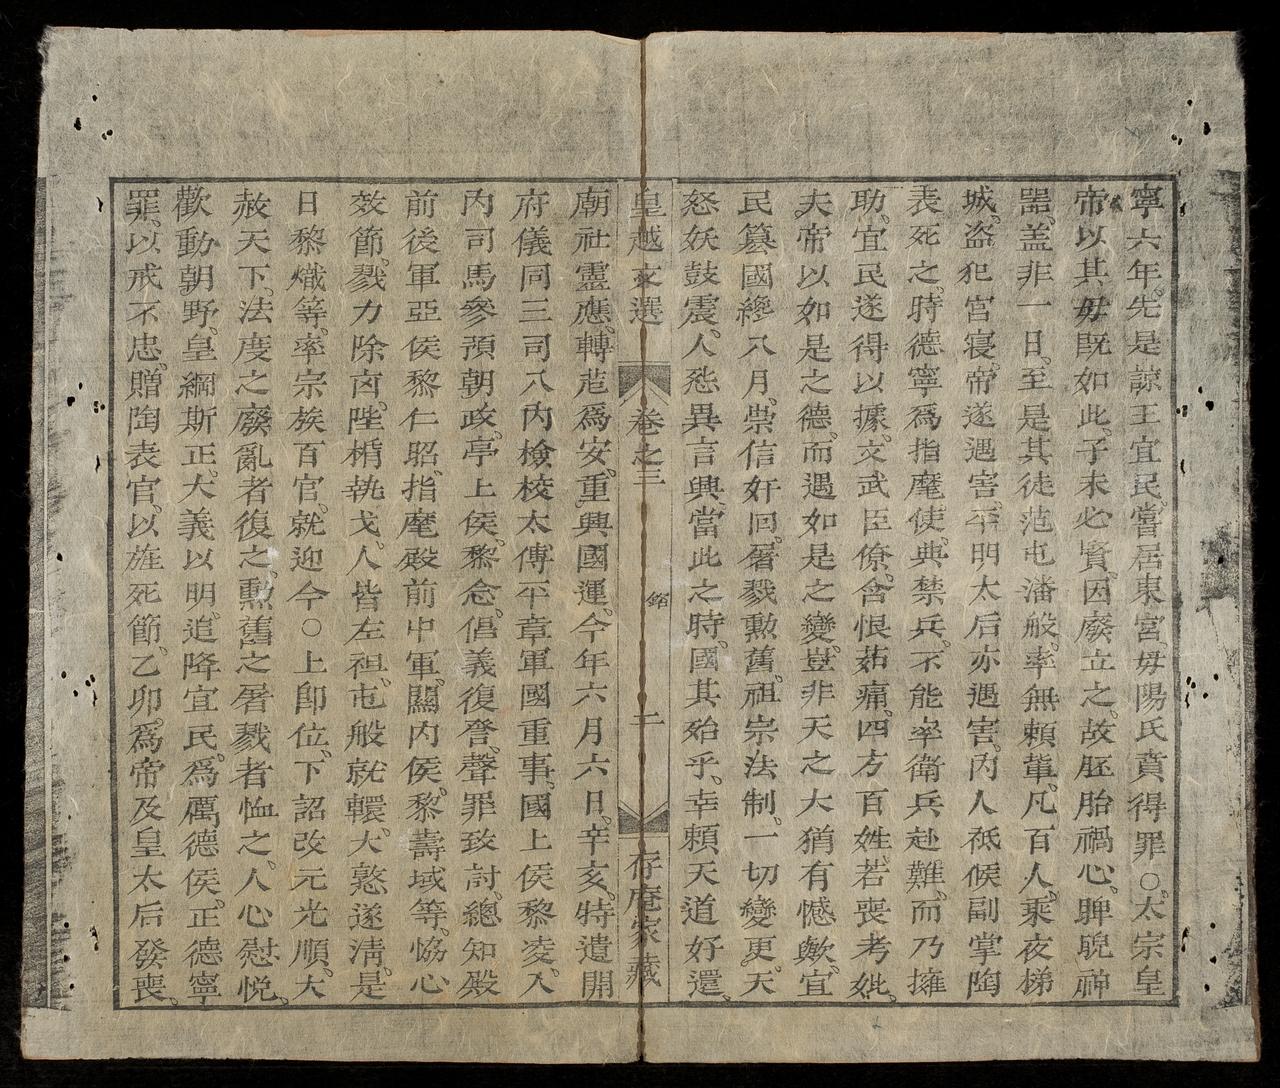 寧六年。先是諒王宜民。嘗居東宮。毋陽氏賁得罪。○太宗皇
帝以其毋既如此。子未必賢。因廢立之。故胚胎禍心。睥睨神
器。盖非一日。至是其徒范屯潘般。率無賴軰。凡百人。乘夜梯
城。盗犯宮寝。帝遂遇害。平明太后亦遇害。內人祗候副掌陶
表死之。時德寧爲指麾使。典禁兵。不能率衛兵赴難。而乃擁
助。宜民遂得以據。文武臣僚。含恨茹痛。四方百姓。若喪考妣。
夫帝以如是之德。而遇如是之變。豈非天之大猶有憾歟。宜
民簒國纔八月。崇信奸回。屠戮勲舊。祖宗法制。一切變更。天
怒妖鼓震。人愁異言興。當此之時。國其殆乎。幸賴天道好還。
皇越文選 卷之三 二 存庵家藏
廟社靈應。轉危爲安。重興國運。今年六月六日。辛亥。特遣開
府儀同三司入內檢校太傅平章軍國重事。國上侯黎凌。入
內司馬參預朝政。亭上侯。黎念。倡義復讐。聲罪致討。總知殿
前後軍亞侯黎仁昭。指麾殿前中軍。關內侯。黎壽域等。恊心
效節。戮力除㐫。陛楯執戈。人皆左袒。屯般就轘。大憝遂淸。是
日黎熾等。率宗族百官。就迎今○上卽位。下詔改元光順。大
赦天下。法度之廢亂者復之。勲舊之屠戮者恤之。人心慰悅。
歡動朝野。皇綱斯正。大義以明。追降宜民。爲厲德侯。正德寧
罪。以戒不忠。贈陶表官。以旌死節。乙卯。爲帝及皇太后發喪。